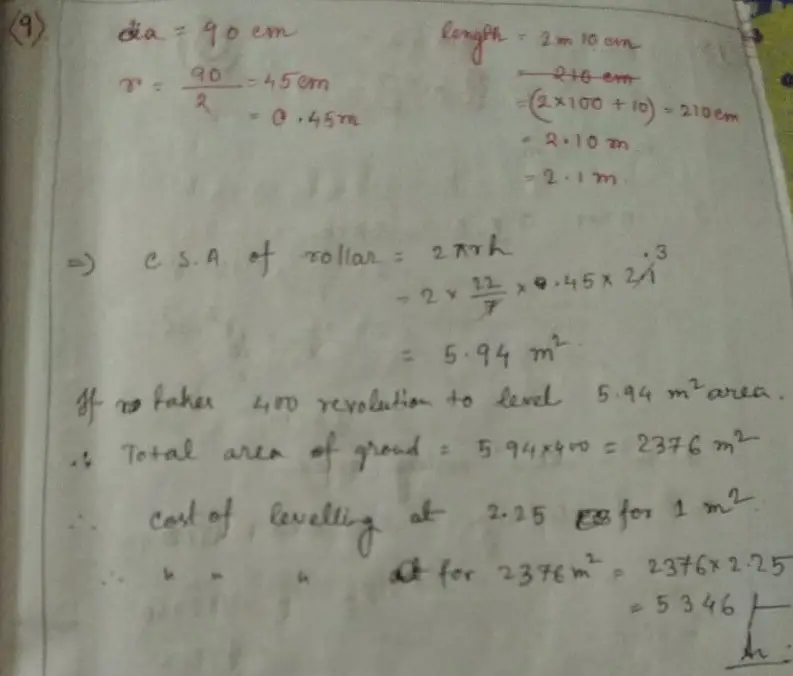 (9) dia = 90 cm
r = 90/2 = 45 cm
= 0.45 m
length = 2 m 10 cm
= 210 cm
= (2×100 + 10) = 210 cm
= 2.10 m
= 2.1 m
⇒) C.S.A. of rollar = 2πrh
= 2 × 22/7 × 0.45 × 2.1 .3
= 5.94 m²
If takes 400 revolution to level 5.94 m² area.
∴ Total area of groud = 5.94×400 = 2376 m²
∴ cost of levelling at 2.25 for 1 m².
∴ " " " for 2376 m² = 2376 × 2.25
= 5346